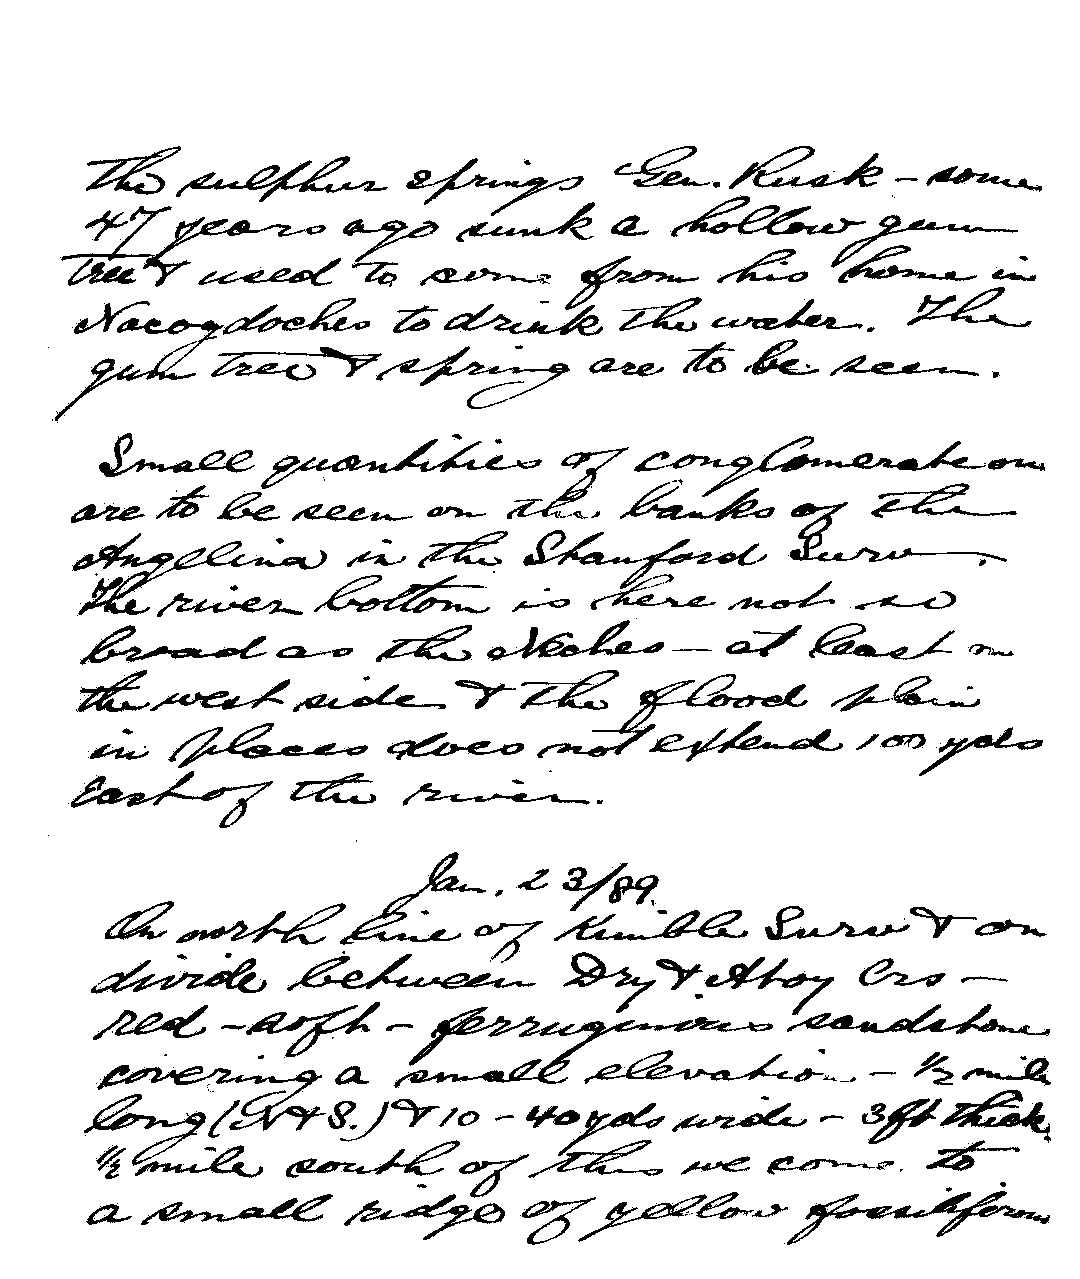 The sulphur springs Gen. Rusk – some
47 years ago sunk a hollow gum
tree & used to come from his home in
Nacogdoches to drink the water. The
gum tree & spring are to be seen.
Small quantities of conglomerate ore
are to be seen on the banks of the
Angelina in the Stanford Surv.
The river bottom is here not so
broad as the Neches – at least on
the west side & the flood plain
in places does not extend 100 yds
East of the river.
Jan. 23/89.
On north line of Kimble Surv & on
divide between Dry & Atoy Crs –
red – soft – ferruginous sandstone
covering a small elevation – 1/2 mile
long (N & S.) & 10 – 40 yds wide – 3 ft thick.
1/2 mile south of this we come to
a small ridge of yellow fossiliferous